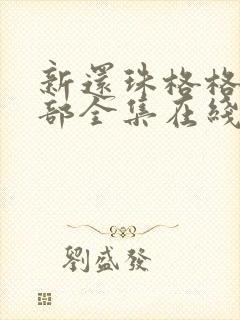 新還珠格格
部全集在綫
劉盛發